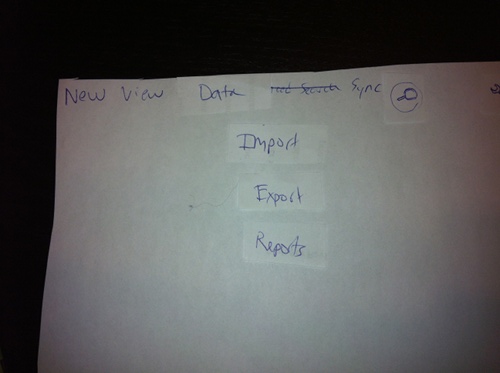 New View Data Sync
Import
Export
Reports